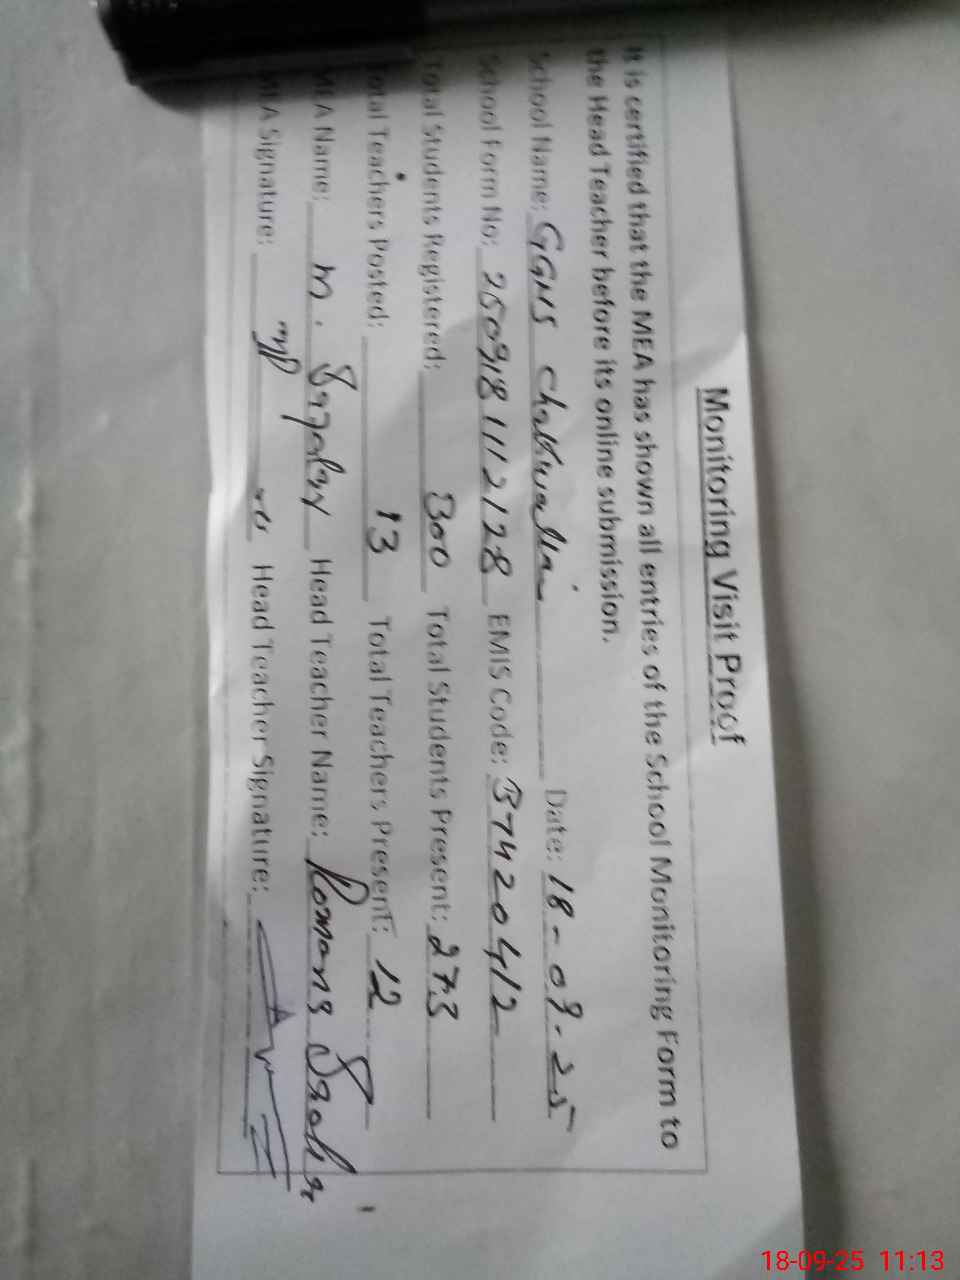 Monitoring Visit Proof
It is certified that the MEA has shown all entries of the School Monitoring Form to
the Head Teacher before its online submission.
School Name: GGHS Date: 18-09-25
School Form No: 250918112128 EMIS Code: 37420412
Total Students Registered: 300 Total Students Present: 273
Total Teachers Posted: 13 Total Teachers Present: 12
MEA Name: M. Head Teacher Name:
MEA Signature: Head Teacher Signature:
18-09-25 11:13